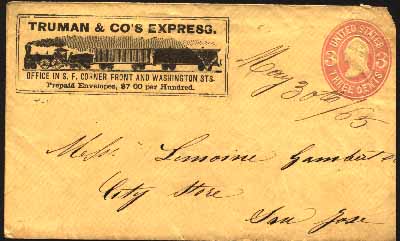 TRUMAN & CO'S EXPRESS.
OFFICE IN S. F. CORNER FRONT AND WASHINGTON STS.
Prepaid Envelopes, $7 00 per Hundred.
UNITED STATES
3 3
THREE CENTS
May 30th / 65
Mess. Lemoine Gambert
City Store
San Jose